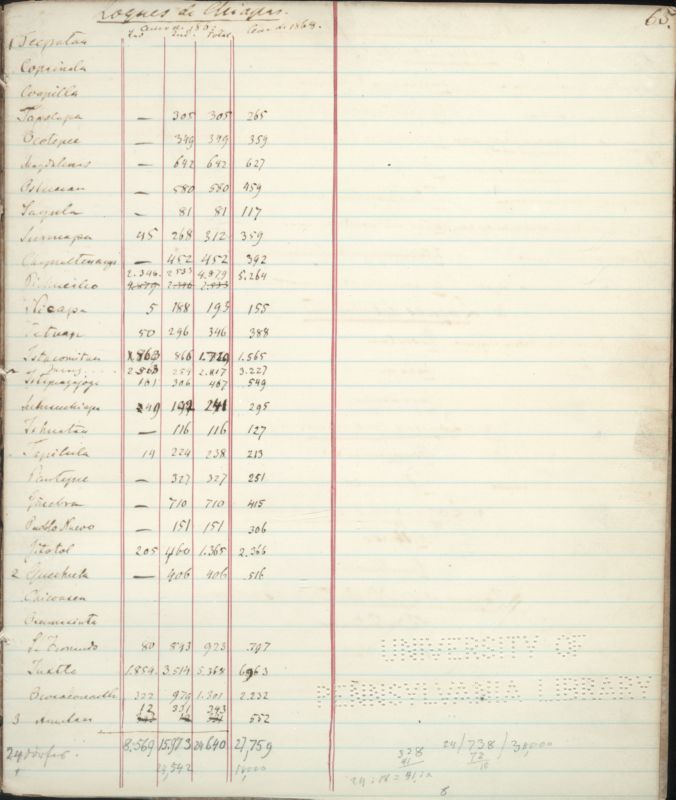 Zoques de Chiapas.
65.
Lad Ind. Total Censo de 1862.
1 Tecpatan
Copainala
Coapilla
Tapalapa — 305 305 265
Ocotepec — 349 349 359
Magdalenas — 642 642 627
Ostuacan — 580 580 459
Sayula — 81 81 117
Sunuapa 45 268 312 359
— 452 452 392
Pichucalco 2.346. 2533 4.879 5.264
4.879 2.346 2.533
Nicapa 5 188 193 155
50 296 346 388
Istacomitan 863 866 1.729 1.565
Juarez 2.563 254 2.817 3.227
101 306 407 549
49 192 241 295
Ishuatan — 116 116 127
Tapilula 14 224 238 213
Pantepec — 327 327 251
— 710 710 415
Pueblo Nuevo — 151 151 306
Jitotol 205 460 1.365 2.366
2 — 406 406 516
Chicoasen
Osumacinta
S. Fernando 80 843 923 .797
Tuxtla 1.854. 3.514 5.368 6963
Ocozocoautla 322 979 1.301 2.232
12 231 243
3 552
8.569 15.973 24640 27,759
24 Dörfer.
24,542
UNIVERSITY OF
PENNSYLVANIA LIBRARY
328
24/738/30,000
72
18